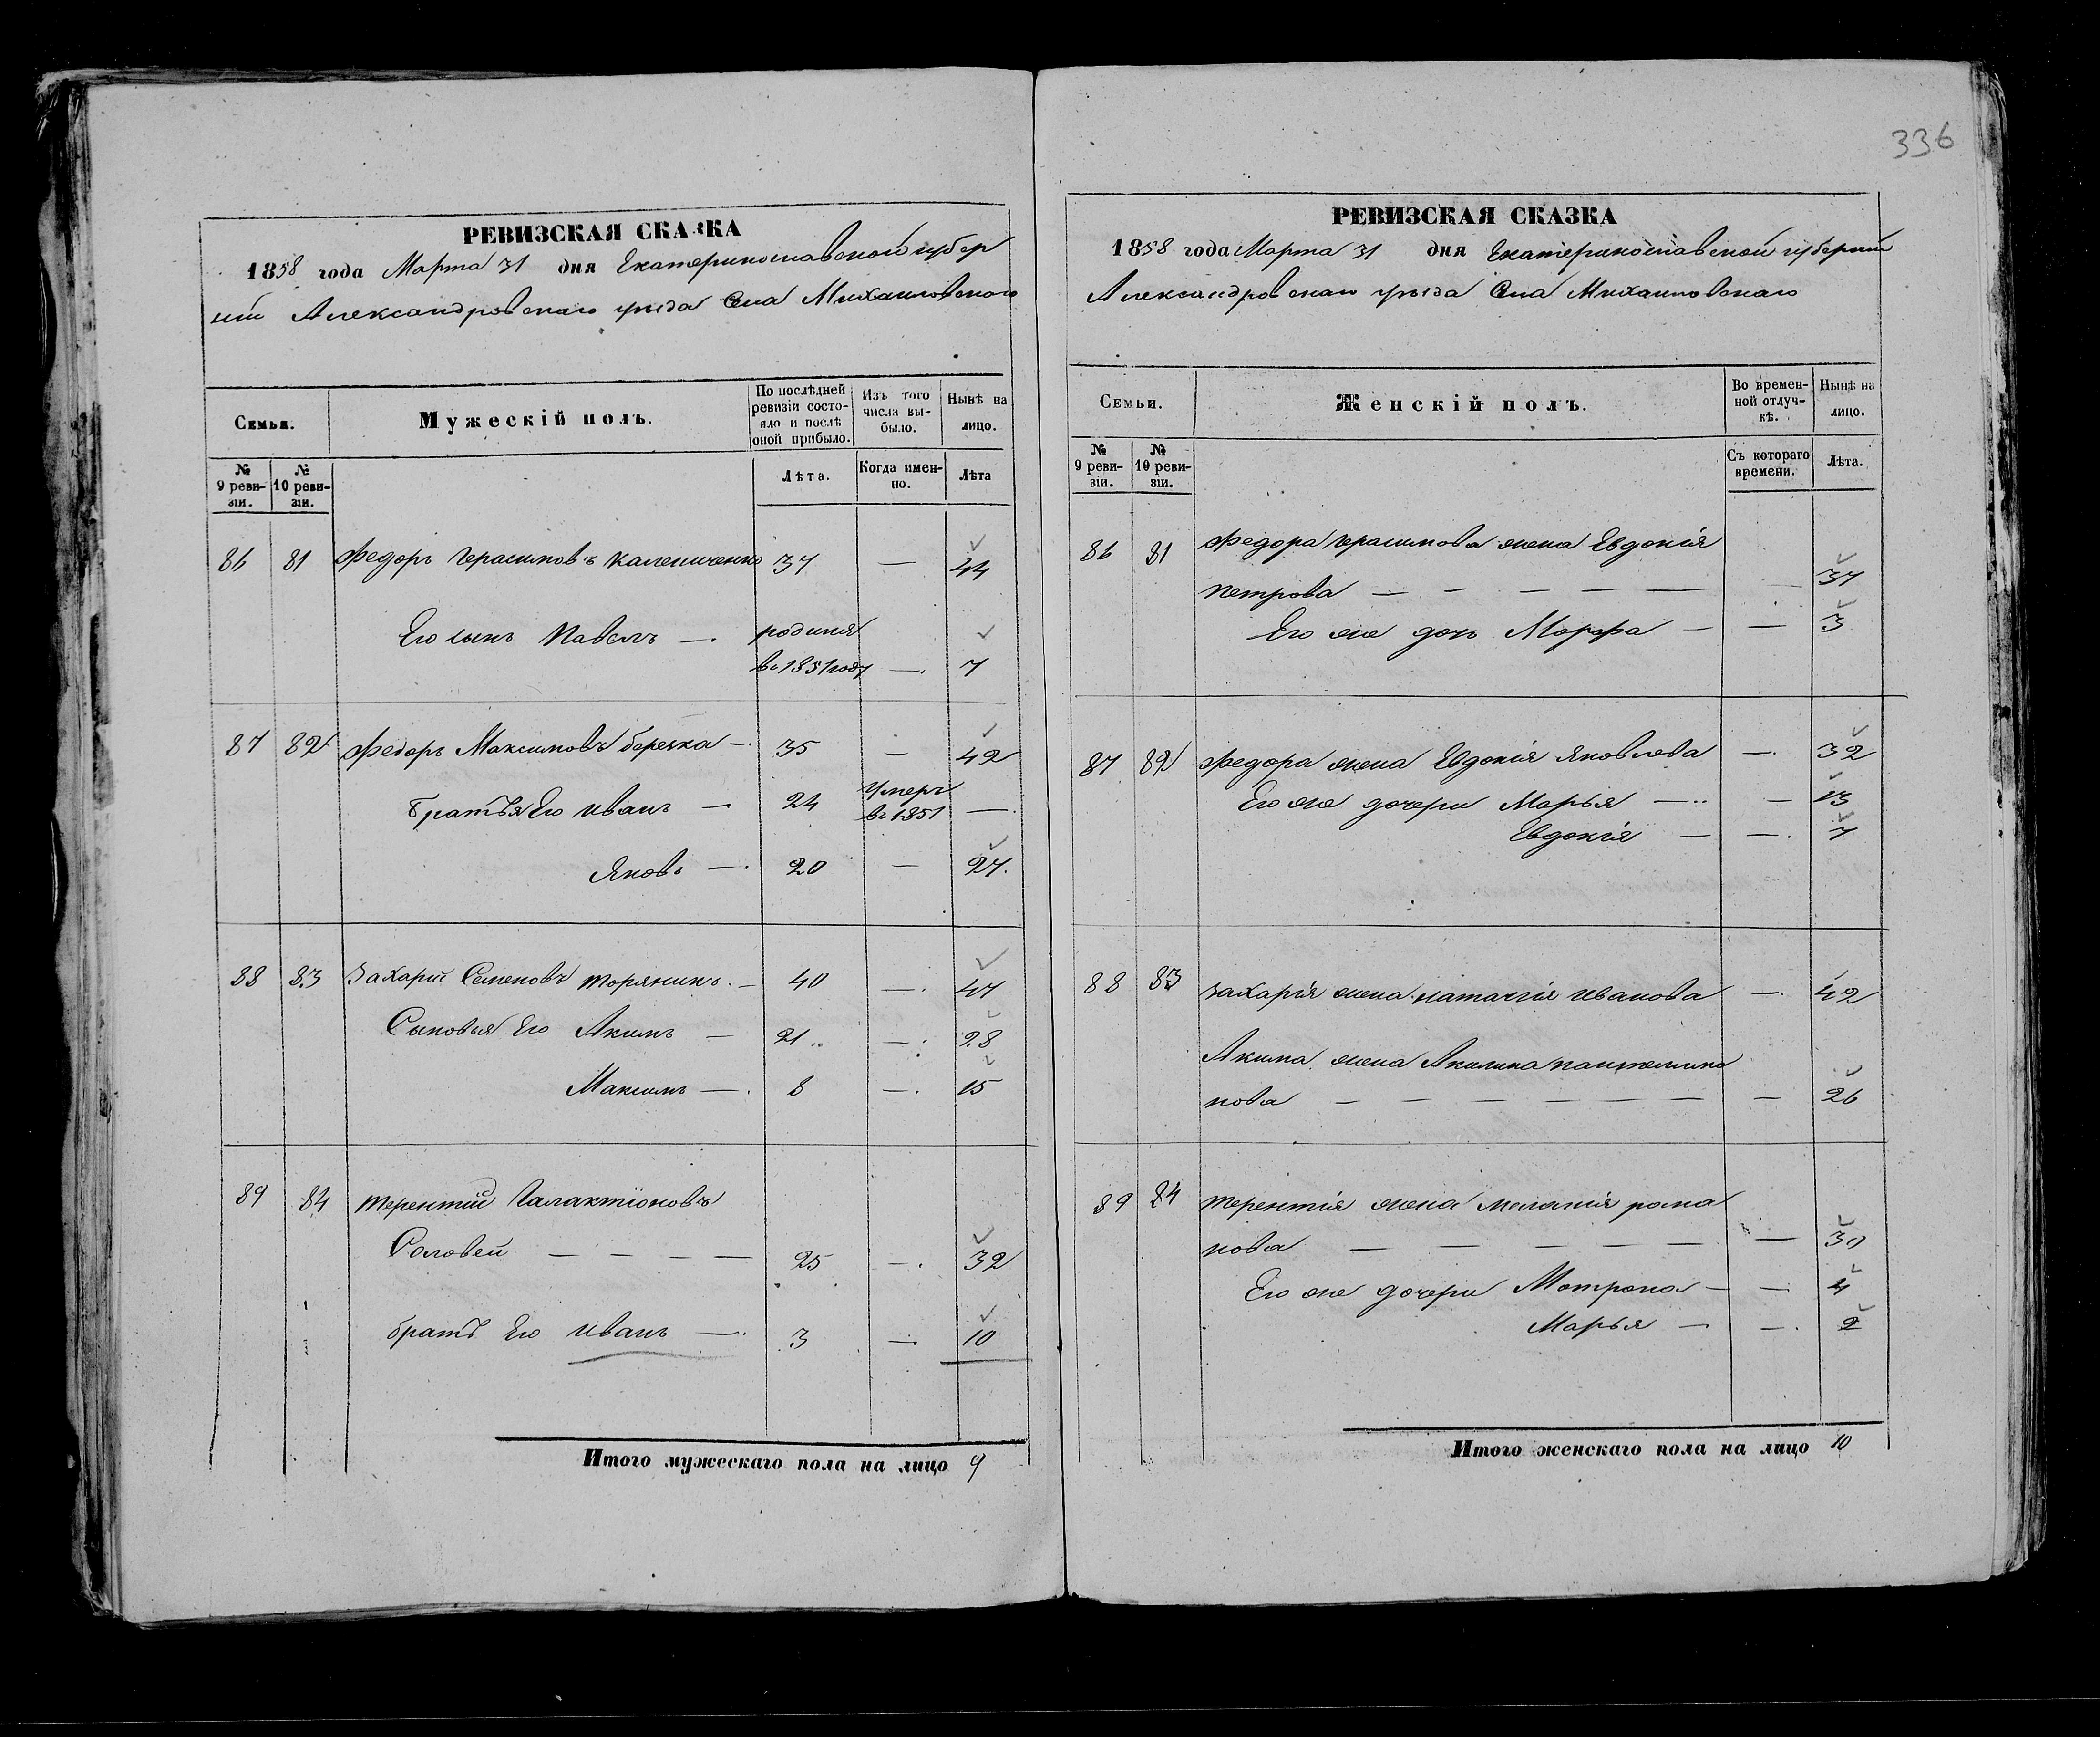 336
РЕВИЗСКАЯ СКАЗКА
1858 года Марта 31 дня Екатеринославской губер
нии Александровскаго уезда Села Михайловскаго
Семьи.
Мужескій полъ.
По послѣдней ревизіи состояло и послѣ оной прибыло.
Изъ того числа выбыло.
Нынѣ на лицо.
№ 9 ревизіи.
№ 10 ревизіи.
Лѣта.
Когда именно.
Лѣта
86 81 Федоръ Герасимовъ Калениченко 37 — 44
Его сынъ Павелъ —. родился
въ 1851 году —. 7
87 82 Федоръ Максимовъ Бережка —. 35 — 42
Братья Его Иванъ — 24 Умеръ
въ 1851 —.
Яковъ —. 20 — 27.
88 83 Захарій Семеновъ Торяникъ. — 40 —. 47
Сыновья Его Акимъ — 21 —. 28
Максимъ —. 8 —. 15
89 84 Терентій Галактіоновъ
Соловей — — — — 25 —. 32
братъ Его Иванъ —. 3 — 10
Итого мужескаго пола на лицо 9
РЕВИЗСКАЯ СКАЗКА
1858 года Марта 31 дня Екатеринославской губерніи
Александровскаго уезда Села Михайловскаго
Семьи.
Женскій полъ.
Во временной отлучкѣ.
Нынѣ на лицо.
№ 9 ревизіи.
№ 10 ревизіи.
Съ котораго времени.
Лѣта.
86 81 Федора Герасимова жена Евдокія
Петрова — — — — — — 37
Его же дочь Марфа — — 3
87 82 Федора жена Евдокія Яковлева —. 32
Его же дочери Марья — — 13
Евдокія — —. 7
88 83 Захарія жена Наталія Иванова —. 42
Акима жена Акилина Пантелимо
нова — — — — — — — 26
89 84 Терентія жена Меланія Рома
нова — — — — — — 30
Его же дочери Матрона — — 4
Марья — —. 2
Итого женскаго пола на лицо 10